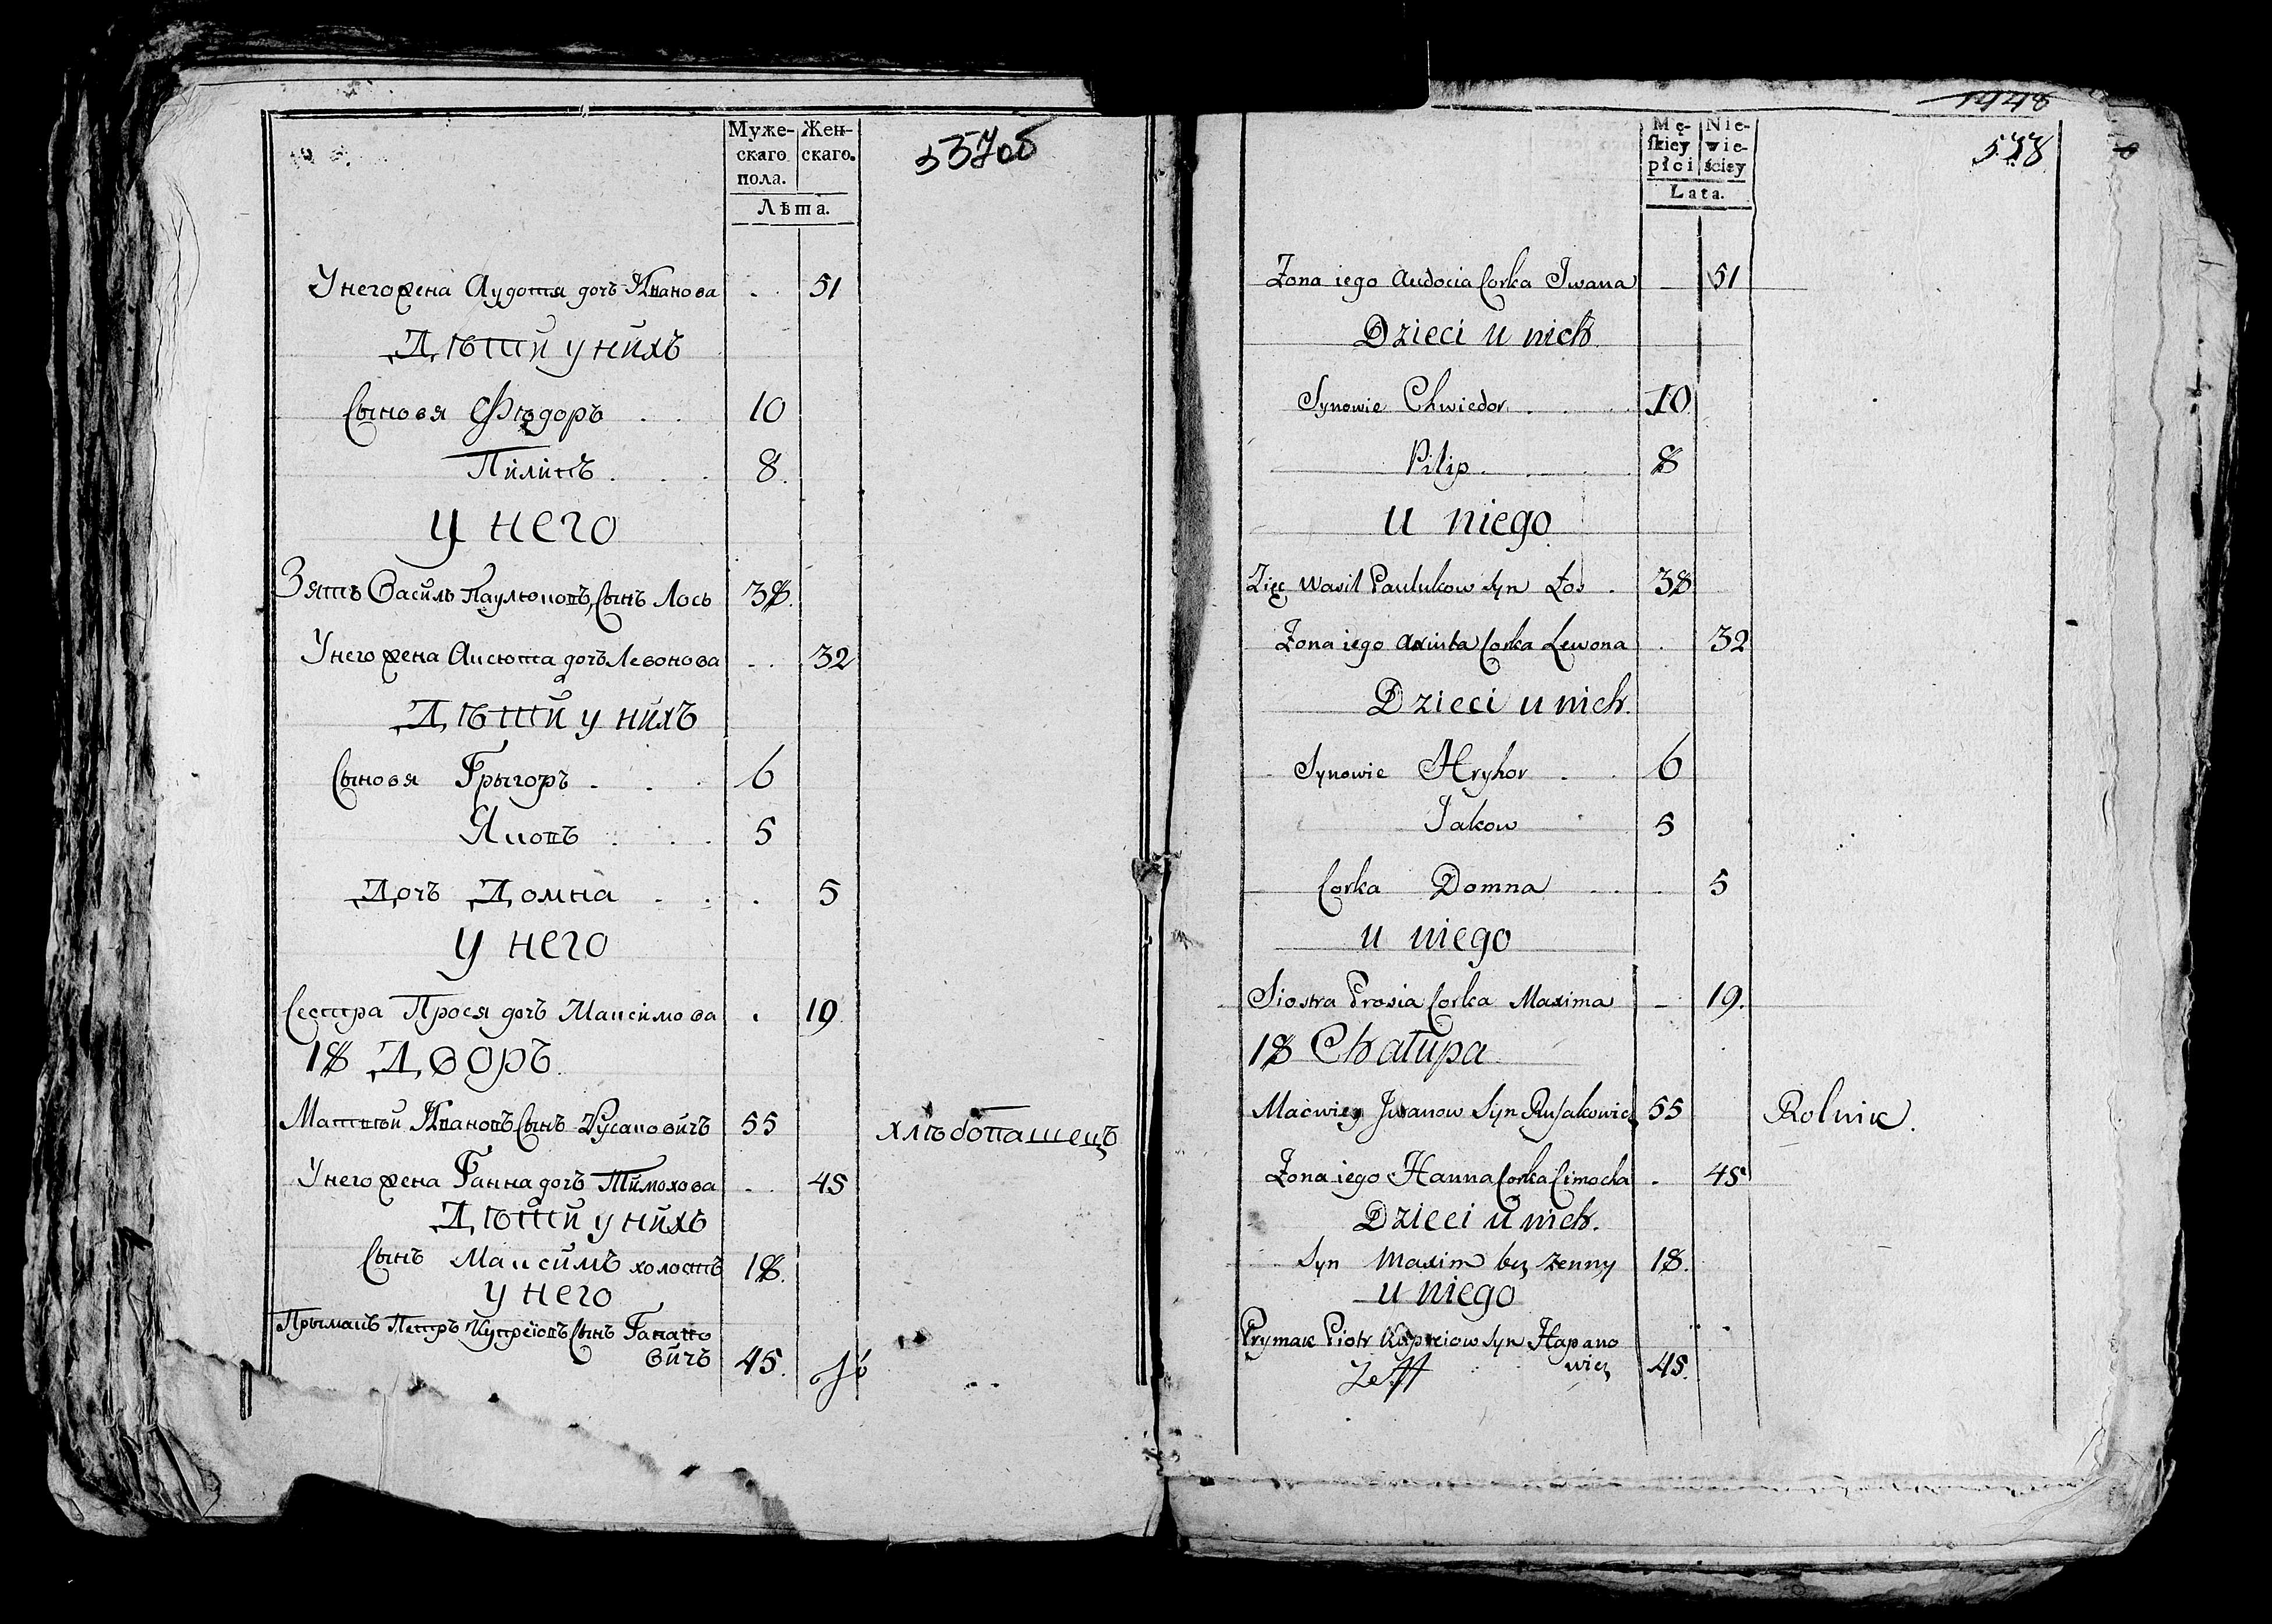 Муже-
скаго
пола.
Жен-
скаго.
Лѣта.
537об
У него жена Аудотя дочъ Иванова . . 51
Дѣти у нихъ
Сыновя Фѣдоръ . . 10
Пилипъ . . . 8.
У него
Зять Василь Паулюковъ Сынъ Лось 38.
У него жена Аксюта дочъ Левонова . . 32
Дѣти у нихъ
Сыновя Грыгоръ . . . 6
Яковъ . . . 5
Дочъ Домна . . . 5
У него
Сестра Прося дочъ Максимова . 19
18 Дворъ
Матвѣй Ивановъ Сынъ Русаковичъ 55 хлѣбопашецъ
У него жена Ганна дочъ Тимохова . . 45
Дѣти у нихъ
Сынъ Максимъ холостъ 18.
У него
Прымакъ Петръ Купреіовъ Сынъ Гапано
вичъ 45.
1448
538
Mę-
skiey
płci
Nie-
wie-
ściey
Lata.
Zona iego Audocia Corka Iwana — 51
Dzieci u nich
Synowie Chwiedor . . . 10
Pilip . . . 8
u niego
Zięc Wasil Paulukow Syn Łos . 38
Zona iego Axiuta Corka Lewona . 32
Dzieci u nich.
Synowie Hryhor . . 6
Jakow 5
Corka Domna . . . 5
u niego
Siostra Prosia Corka Maxima — 19.
18 Chałupa
Maćwiey Jwanow Syn Rusakowicz 55 Rolnik.
Zona iego Hanna Corka Cimocha . 45
Dzieci u nich.
Syn Maxim bez zenny 18.
u niego
Prymak Piotr Kupreiow Syn Hapano
wicz 45.